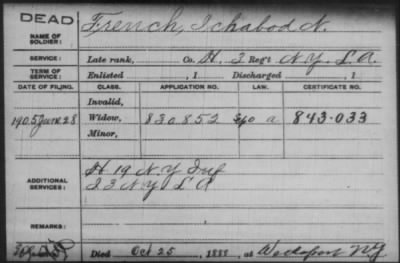 DEAD
NAME OF SOLDIER: French, Ichabod N.
SERVICE: Late rank, Co. H. 3 Reg't N.Y. L.A.
TERM OF SERVICE: Enlisted , 1 Discharged , 1
DATE OF FILING. CLASS. APPLICATION NO. LAW. CERTIFICATE NO.
Invalid,
1905 June 28 Widow, 830852 a 843-033
Minor,
ADDITIONAL SERVICES: H 19 N.Y Inf
I 3 N.Y L A
REMARKS:
Died Oct 25 , 1888 , at N.Y